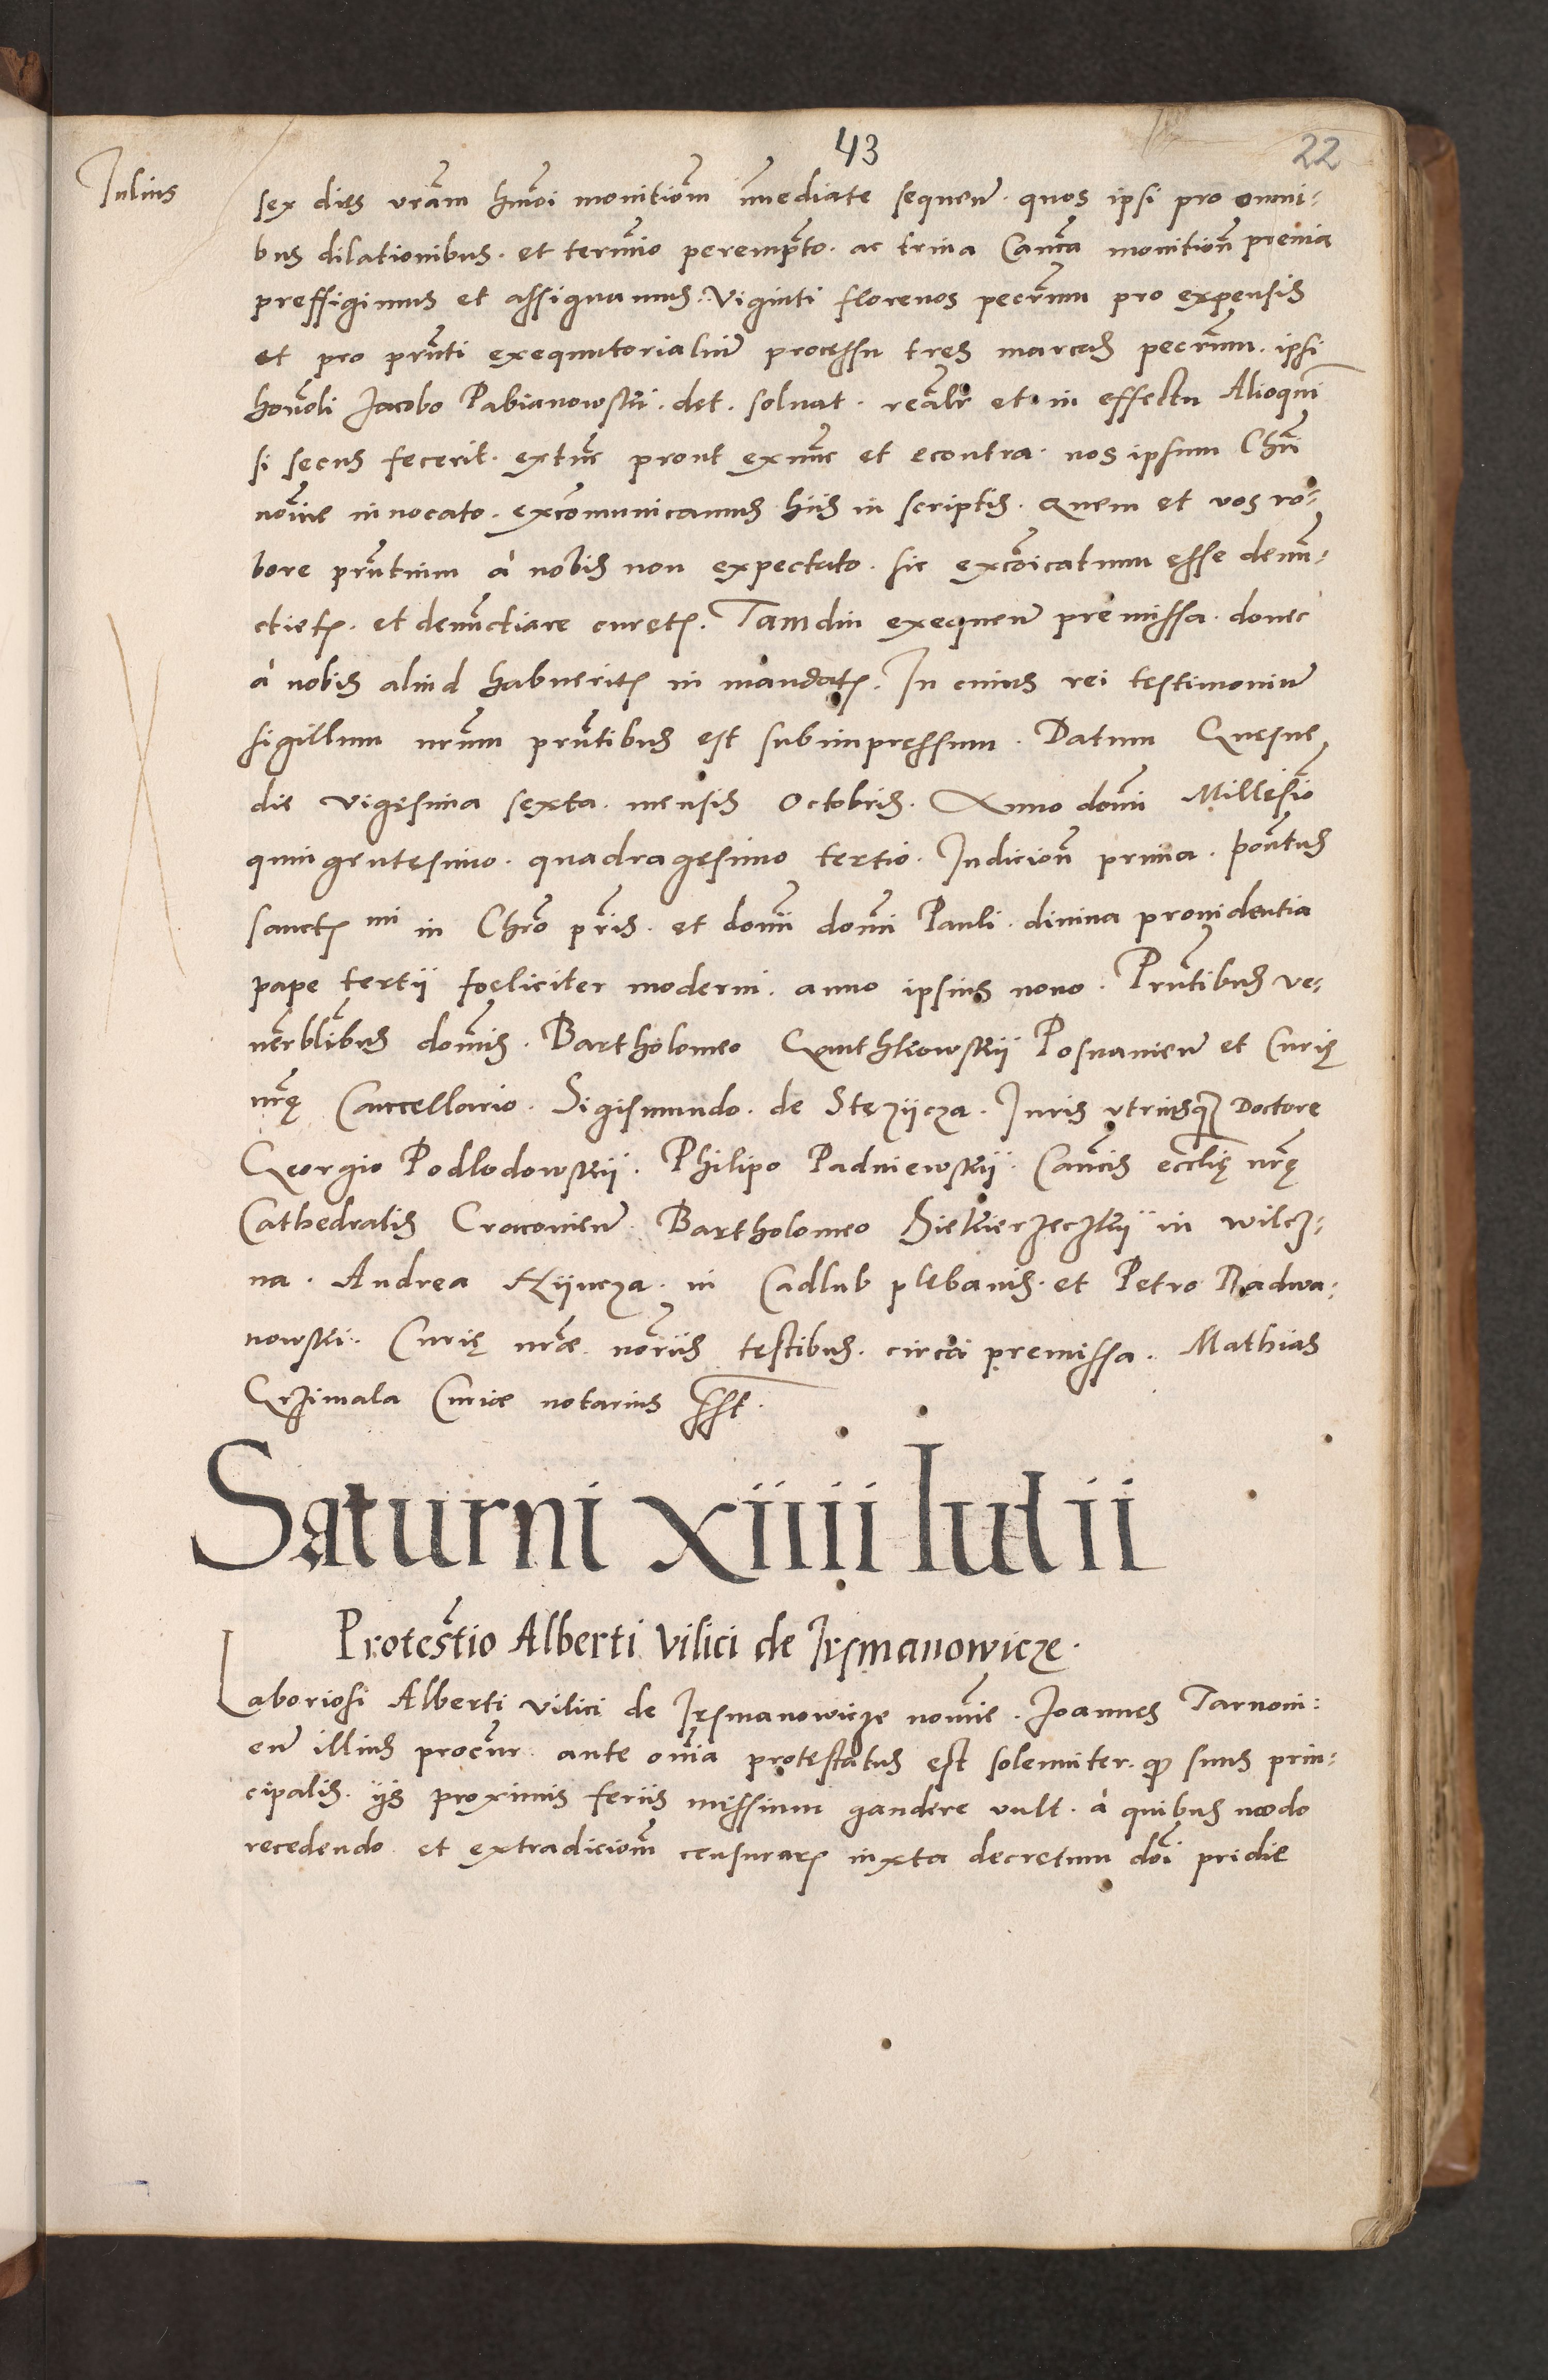 43
22
Julius
sex dies vram hmoi monitiom immediate sequen. quos ipsi pro omni-
bus dilationibus. et termino perempto. ac trina Canca monition premia
preffigimus et assignamus: Viginti florenos pecrum pro expensis
et pro prnti exequutorialium processu tres marcas pecrum. ipsi
honoli Jacobo Pabianowski. det. soluat. realr et in effectu Alioqui
si secus fecerit. extunc prout exnunc et econtra. nos ipsum Chri
noie inuocato. excomunicamus hiis in scriptis. quem et vos ro-
bore prntium à nobis non expectato. sic excoicatum esse denun-
ctietis. et denunctiare curetis. Tamdiu exequen premissa. donec
à nobis aliud habueritis in mandatis. In cuius rei testimonium
sigillum nrum prntibus est subimpressum. Datum Gnesne
die Vigesima sexta. mensis Octobris. Anno domi Millesimo
quingentesimo. quadragesimo tertio. Indicion prima. pontus
sanctis mi in Chro pris. et domi domi Pauli. diuina prouidentia
pape tertii foeliciter moderni. anno ipsius nono. Prntibus ve-
nerblibus domis. Bartholomeo Posnanien et Curię
nrę Cancellario. Sigismundo. de Stezÿcza. Juris vtriusq Doctore
Georgio Podlodowskÿ. Philipo Padniewskÿ. Cancis ecclię nrę
Cathedralis Cracouien. Bartholomeo in wilcz-
na. Andrea in Cadlub plebanis. et Petro Radwa-
nowski. Curię nrae noriis testibus. circa premissa. Mathias
Grzimala Curiae notarius sst.
Saturni xiiii Iulii
Protestio Alberti Vilici de Irsmanowicze.
Laboriosi Alberti vilici de Jrsmanowicze nomie. Joannes Tarnoui-
en illius procur. ante omia protestatus est solemniter. qp suus prin-
cipalis. ijs proximis feriis messium gaudere vult. à quibus modo
recedendo et extradiciom censurar iuxta decretum doi pridie